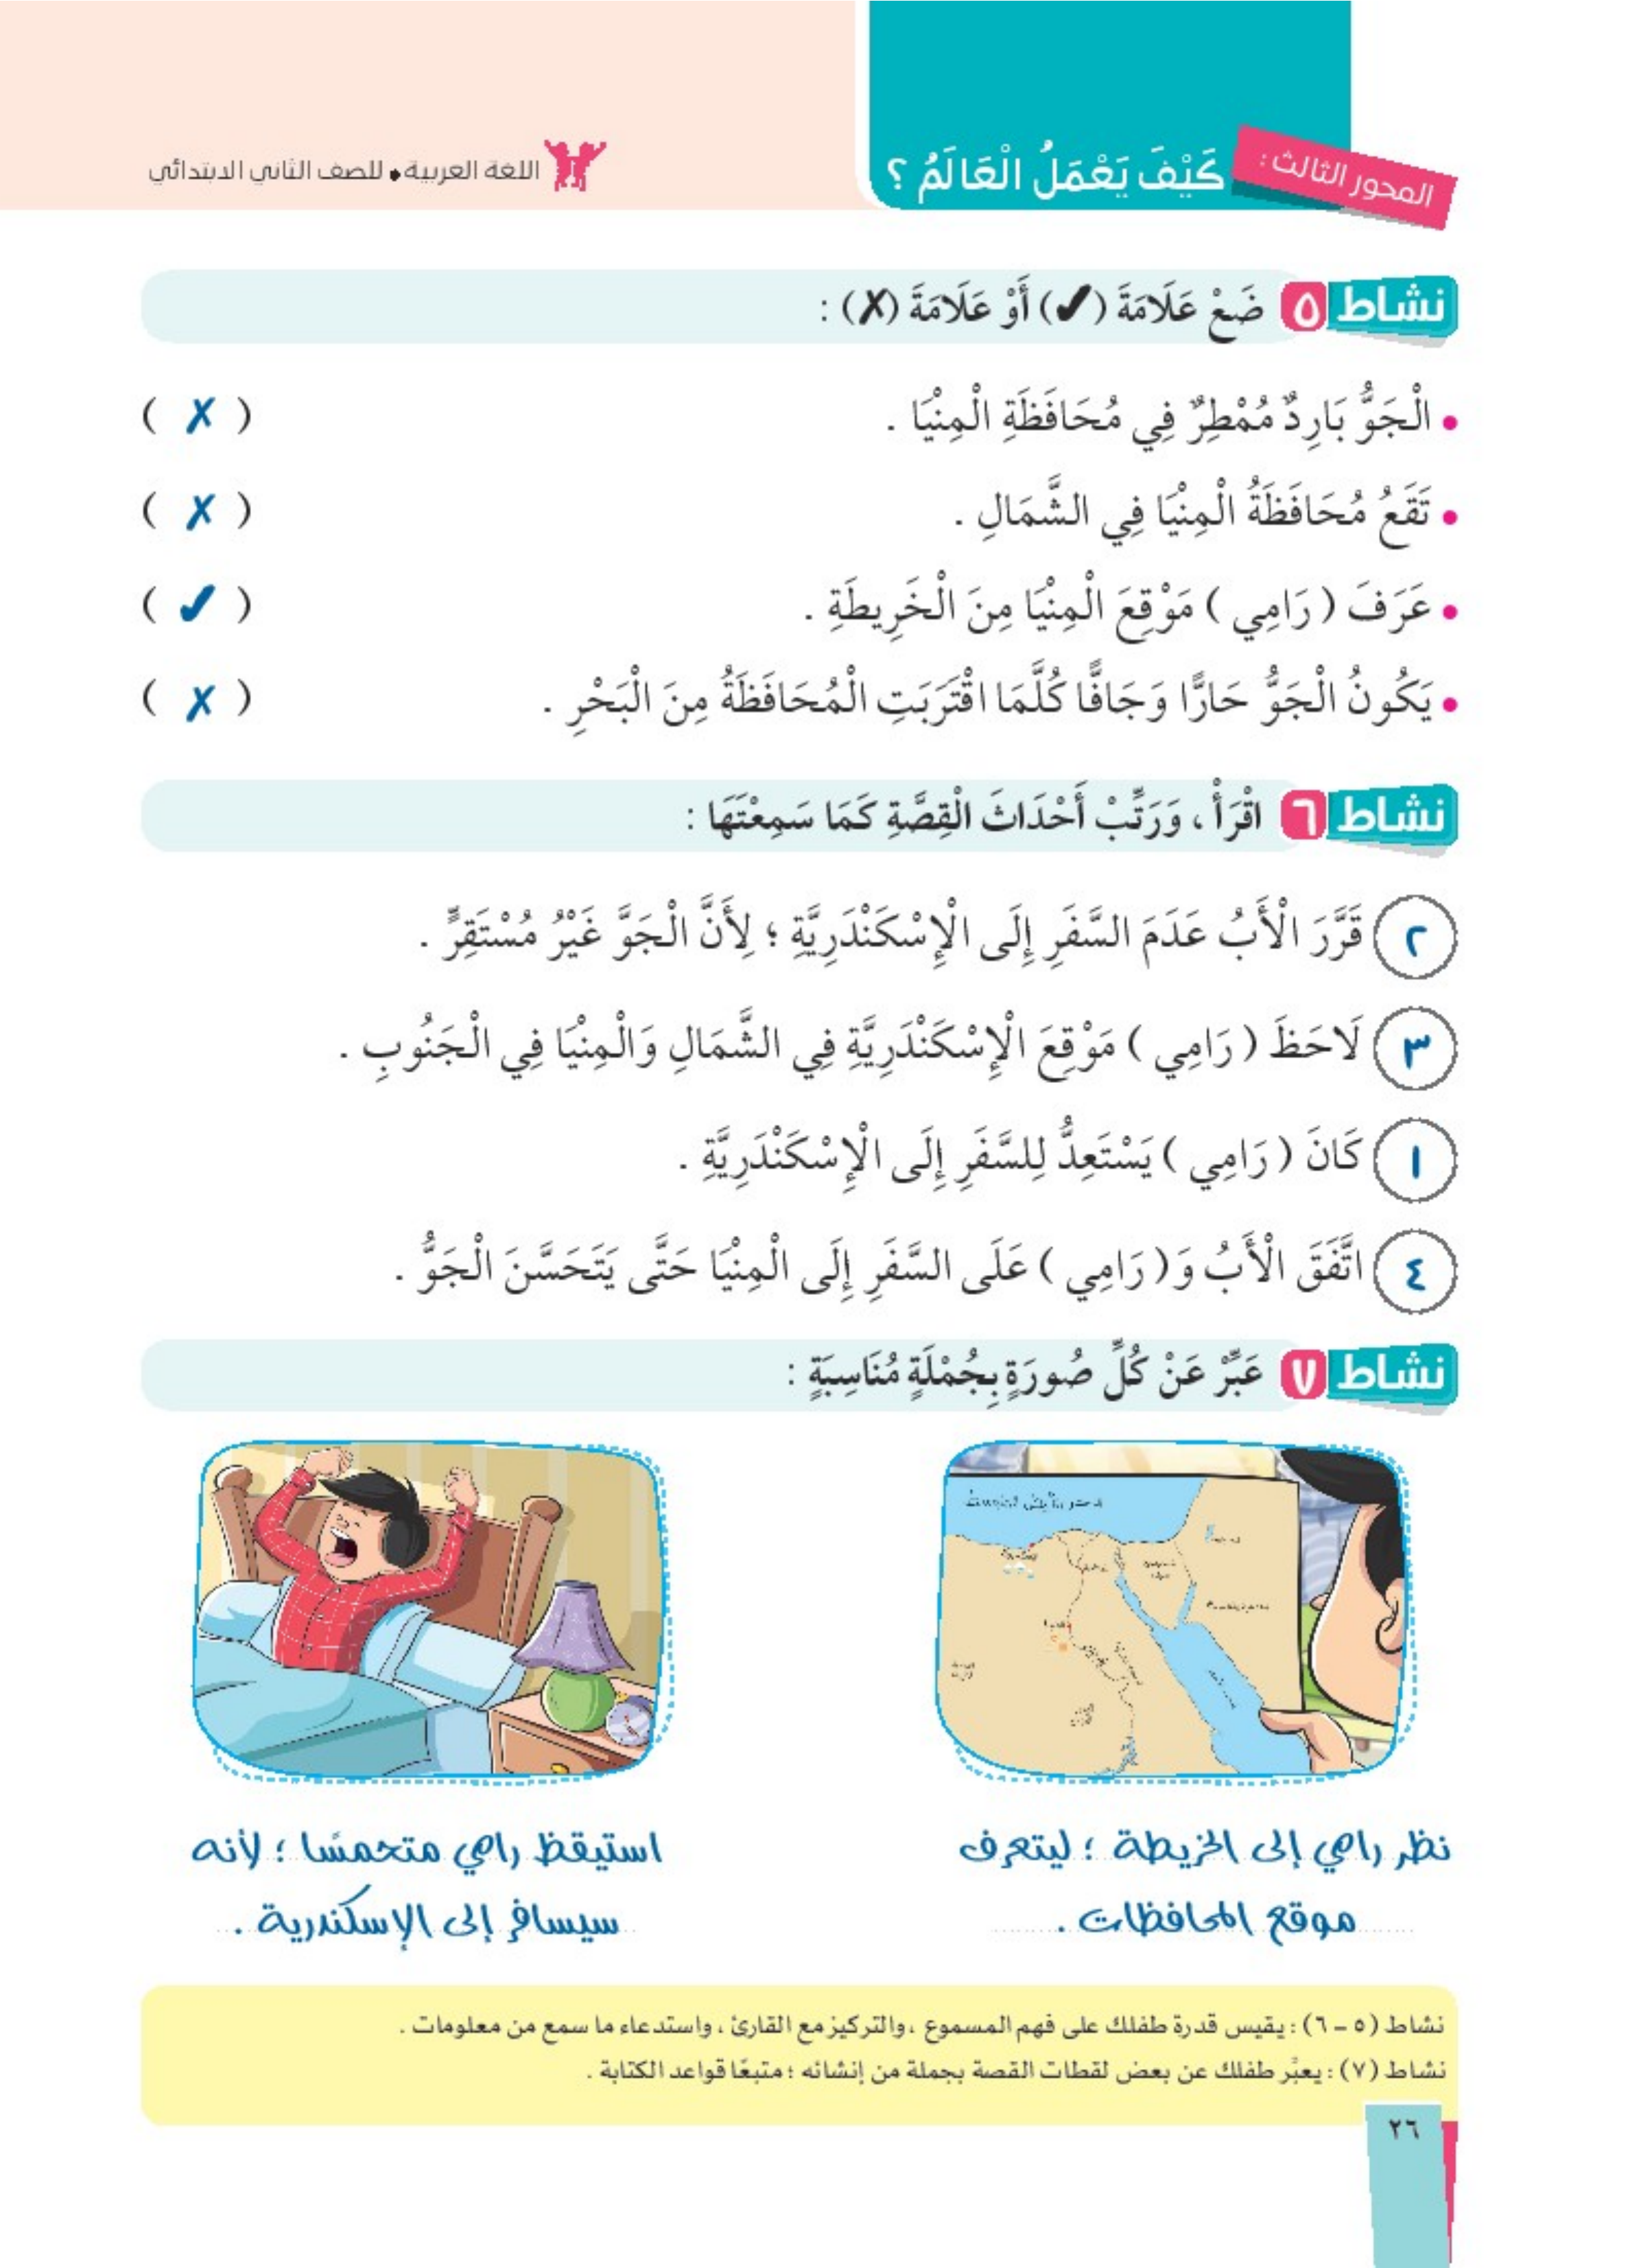 المحور الثالث :
كَيْفَ يَعْمَلُ الْعَالَمُ ؟
اللغة العربية • للصف الثاني الابتدائي
نشاط ٥ ضَعْ عَلَامَةَ (✓) أَوْ عَلَامَةَ (✗) :
• الْجَوُّ بَارِدٌ مُمْطِرٌ فِي مُحَافَظَةِ الْمِنْيَا . ( ✗ )
• تَقَعُ مُحَافَظَةُ الْمِنْيَا فِي الشَّمَالِ . ( ✗ )
• عَرَفَ ( رَامِي ) مَوْقِعَ الْمِنْيَا مِنَ الْخَرِيطَةِ . ( ✓ )
• يَكُونُ الْجَوُّ حَارًّا وَجَافًّا كُلَّمَا اقْتَرَبَتِ الْمُحَافَظَةُ مِنَ الْبَحْرِ . ( ✗ )
نشاط ٦ اقْرَأْ ، وَرَتِّبْ أَحْدَاثَ الْقِصَّةِ كَمَا سَمِعْتَهَا :
٢ قَرَّرَ الْأَبُ عَدَمَ السَّفَرِ إِلَى الْإِسْكَنْدَرِيَّةِ ؛ لِأَنَّ الْجَوَّ غَيْرُ مُسْتَقِرٍّ .
٣ لَاحَظَ ( رَامِي ) مَوْقِعَ الْإِسْكَنْدَرِيَّةِ فِي الشَّمَالِ وَالْمِنْيَا فِي الْجَنُوبِ .
١ كَانَ ( رَامِي ) يَسْتَعِدُّ لِلسَّفَرِ إِلَى الْإِسْكَنْدَرِيَّةِ .
٤ اتَّفَقَ الْأَبُ وَ( رَامِي ) عَلَى السَّفَرِ إِلَى الْمِنْيَا حَتَّى يَتَحَسَّنَ الْجَوُّ .
نشاط ٧ عَبِّرْ عَنْ كُلِّ صُورَةٍ بِجُمْلَةٍ مُنَاسِبَةٍ :
نظر رامي إلى الخريطة ؛ ليتعرف
موقع المحافظات .
استيقظ رامي متحمسًا ؛ لأنه
سيسافر إلى الإسكندرية .
نشاط (٥ – ٦) : يقيس قدرة طفلك على فهم المسموع ، والتركيز مع القارئ ، واستدعاء ما سمع من معلومات .
نشاط (٧) : يعبِّر طفلك عن بعض لقطات القصة بجملة من إنشائه ؛ متبعًا قواعد الكتابة .
٢٦